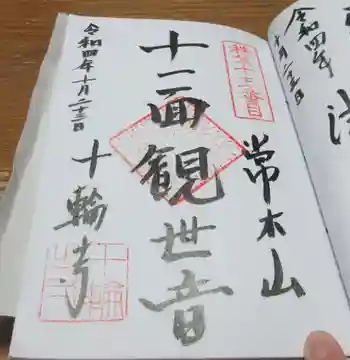 常木山
十一面観世音
十輪寺
令和四年十月二十三日
令和四年
十月二十三日